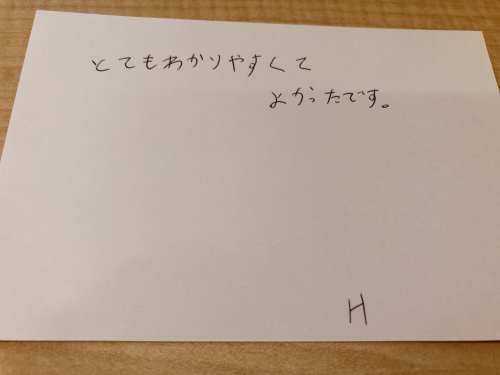 とてもわかりやすくて
よかったです。
H